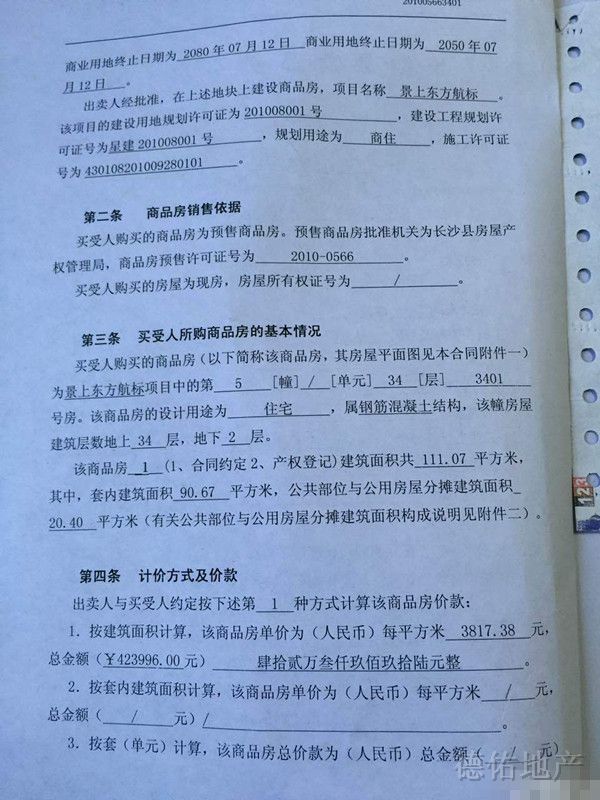 201005663401
商业用地终止日期为 2080 年 07 月 12 日 商业用地终止日期为 2050 年 07
月 12 日 。
出卖人经批准，在上述地块上建设商品房，项目名称 景上东方航标 。
该项目的建设用地规划许可证为 201008001 号 ，建设工程规划许
可证号为星建 201008001 号 ，规划用途为 商住 ，施工许可证
号为 430108201009280101 。
第二条 商品房销售依据
买受人购买的商品房为预售商品房。预售商品房批准机关为长沙县房屋产
权管理局，商品房预售许可证号为 2010-0566 。
买受人购买的房屋为现房，房屋所有权证号为 / 。
第三条 买受人所购商品房的基本情况
买受人购买的商品房（以下简称该商品房，其房屋平面图见本合同附件一）
为景上东方航标项目中的第 5 [幢] / [单元] 34 [层] 3401
号房。该商品房的设计用途为 住宅 ，属钢筋混凝土结构，该幢房屋
建筑层数地上 34 层，地下 2 层。
该商品房 1 （1、合同约定 2、产权登记）建筑面积共 111.07 平方米，
其中，套内建筑面积 90.67 平方米，公共部位与公用房屋分摊建筑面积
20.40 平方米（有关公共部位与公用房屋分摊建筑面积构成说明见附件二）。
第四条 计价方式及价款
出卖人与买受人约定按下述第 1 种方式计算该商品房价款：
1. 按建筑面积计算，该商品房单价为（人民币）每平方米 3817.38 元，
总金额（￥423996.00 元） 肆拾贰万叁仟玖佰玖拾陆元整 。
2. 按套内建筑面积计算，该商品房单价为（人民币）每平方米 / 元，
总金额（ / 元）/ 。
3. 按套（单元）计算，该商品房总价款为（人民币）总金额（ / 元）
德祐地产
123